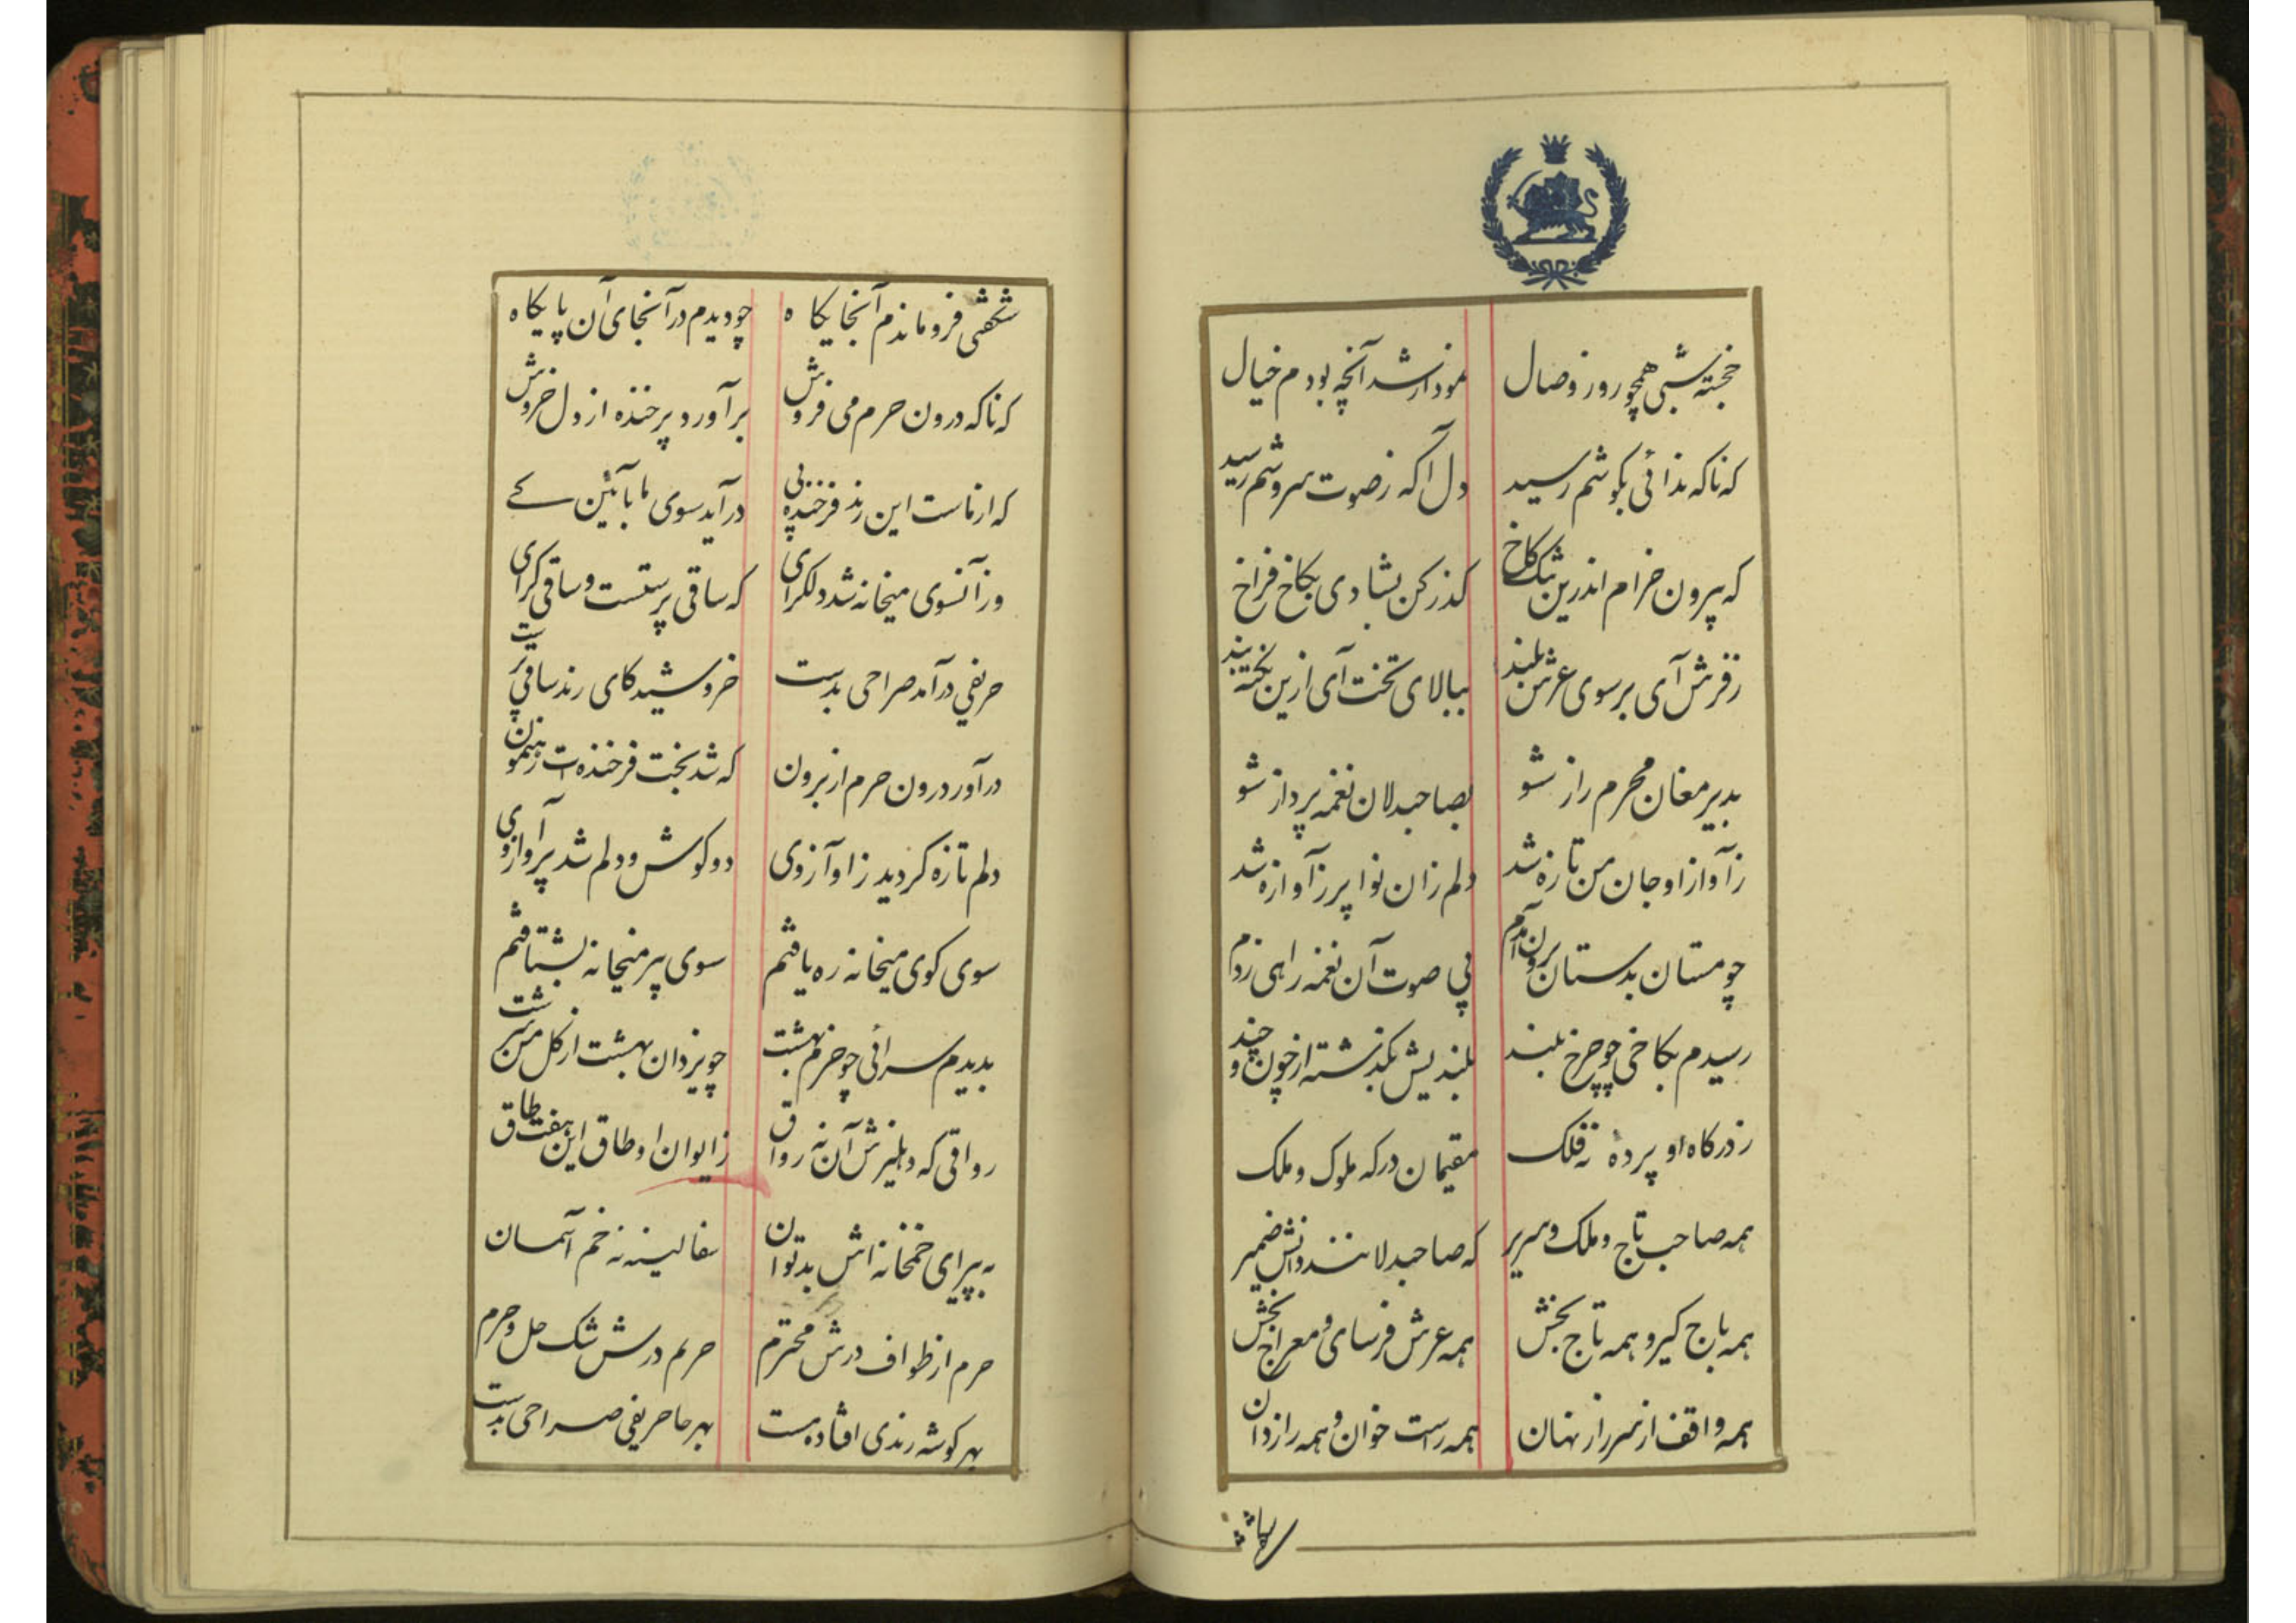 خجسته شبی همچو روز وصال نمودار شد آنچه بودم خیال
که ناکه ندائی بکوشم رسید دل آکه ز صوت سروشم رسید
که بیرون خرام اندرین تنک کاخ کذر کن بشادی بکاخ فراخ
ز فرش آی بر سوی عرش بلند ببالای تخت آی ازین تخته بند
بدیر مغان محرم راز شو بصاحبدلان نغمه پرداز شو
ز آواز او جان من تازه شد دلم زان نوا پر ز آوازه شد
چو مستان بدستان برون آمدم پی صوت آن نغمه راهی زدم
رسیدم بکاخی چو چرخ بلند بلندیش بکذشته از چون و چند
ز درکاه او پرده نه فلک مقیمان درکه ملوک و ملک
همه صاحب تاج و ملک و سریر که صاحبدلانند و دانش ضمیر
همه باج کیر و همه تاج بخش همه عرش فرسای و معراج بخش
همه واقف از سر راز نهان همه راست خوان و همه رازدان
شکفتی فرو ماندم آنجایکاه چو دیدم در آنجای آن پایکاه
که ناکه درون حرم می فروش برآورد پر خنده از دل خروش
که از ماست این رند فرخنده پی درآید سوی ما بآئین کی
وز آنسوی میخانه شد دلکرای که ساقی پرستست و ساقی کرای
حریفی درآمد صراحی بدست خروشید کای رند ساقی پرست
درآور درون حرم از برون که شد بخت فرخنده ات رهنمون
دلم تازه کردید ز او آرزوی دو کوش و دلم شد پر آواز اوی
سوی کوی میخانه ره یافتم سوی پیر میخانه بشتافتم
بدیدم سرائی چو خرم بهشت چو یزدان بهشت از کل من سرشت
رواقی که دهلیزش آن نه رواق ز ایوان او طاق این هفت طاق
به پیرای خمخانه اش بد توان سفالینه نه خم آسمان
حرم از طواف درش محترم حریم درش رشک حل و حرم
بهر کوشه رندی افتاده مست بهر جا حریفی صراحی بدست